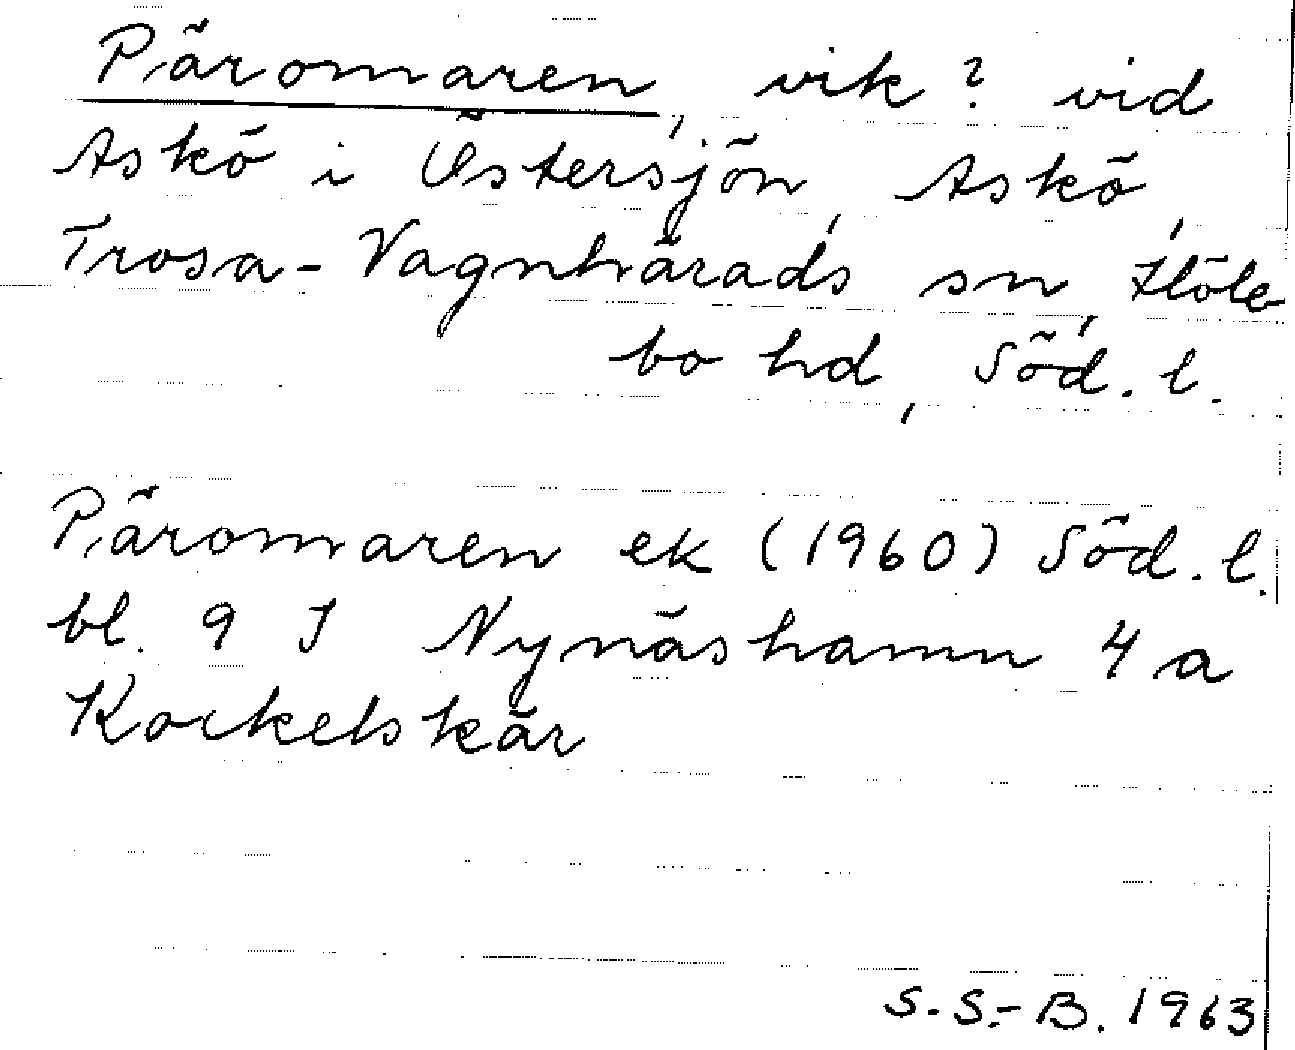 Päromaren, vik? vid
Askö i Östersjön, Askö,
Trosa-Vagnhärads sn, Hölebo
bo hd, Söd. l.
Päromaren ek (1960) Söd. l.
bl. 9 I Nynäshamn 4 a
Kockelskär
S.S.-B. 1963